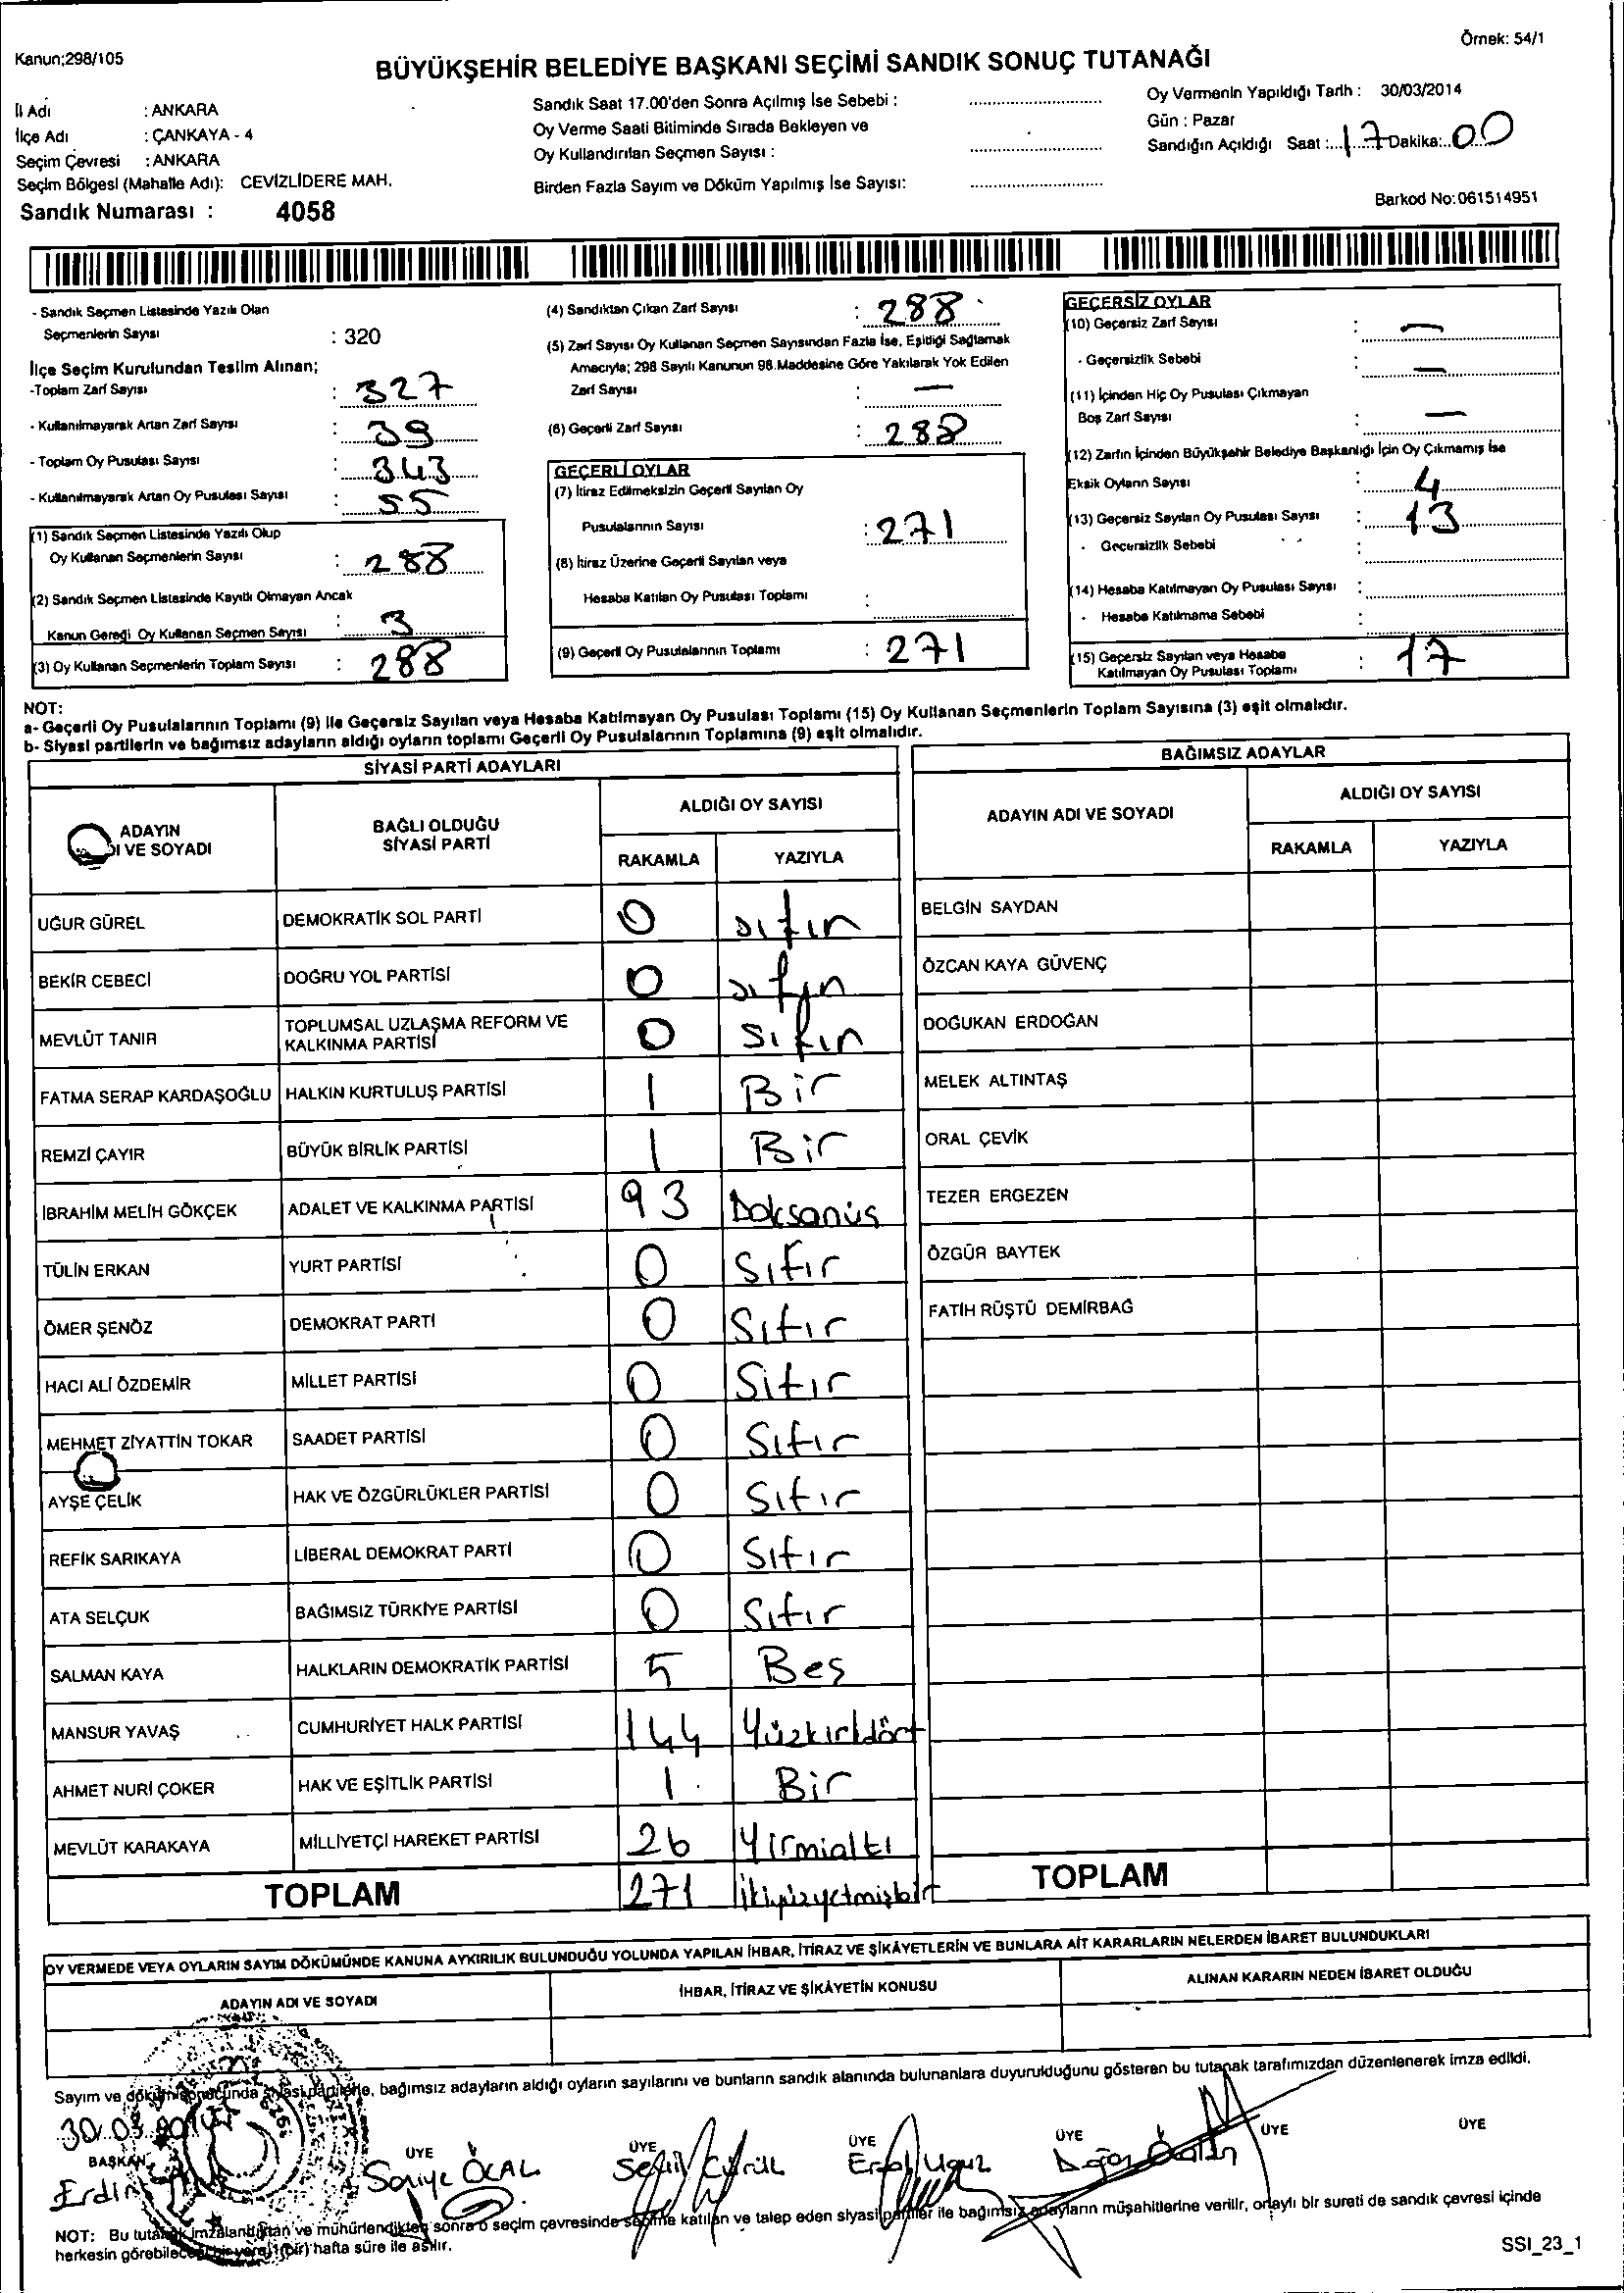 Kanun;298/105
Örnek: 54/1
BÜYÜKŞEHİR BELEDİYE BAŞKANI SEÇİMİ SANDIK SONUÇ TUTANAĞI
İl Adı : ANKARA
İlçe Adı : ÇANKAYA - 4
Seçim Çevresi : ANKARA
Seçim Bölgesi (Mahalle Adı): CEVİZLİDERE MAH.
Sandık Numarası : 4058
Sandık Saat 17.00'den Sonra Açılmış İse Sebebi :
Oy Verme Saati Bitiminde Sırada Bekleyen ve
Oy Kullandırılan Seçmen Sayısı :
Birden Fazla Sayım ve Döküm Yapılmış İse Sayısı:
Oy Vermenin Yapıldığı Tarih : 30/03/2014
Gün : Pazar
Sandığın Açıldığı Saat : 17 Dakika: 00
Barkod No:061514951
- Sandık Seçmen Listesinde Yazılı Olan
Seçmenlerin Sayısı : 320
İlçe Seçim Kurulundan Teslim Alınan;
-Toplam Zarf Sayısı : 327
- Kullanılmayarak Artan Zarf Sayısı : 39
- Toplam Oy Pusulası Sayısı : 343
- Kullanılmayarak Artan Oy Pusulası Sayısı : 55
(1) Sandık Seçmen Listesinde Yazılı Olup
Oy Kullanan Seçmenlerin Sayısı : 288
(2) Sandık Seçmen Listesinde Kayıtlı Olmayan Ancak
Kanun Gereği Oy Kullanan Seçmen Sayısı : 3
(3) Oy Kullanan Seçmenlerin Toplam Sayısı : 288
(4) Sandıktan Çıkan Zarf Sayısı : 288
(5) Zarf Sayısı Oy Kullanan Seçmen Sayısından Fazla İse, Eşitliği Sağlamak
Amacıyla; 298 Sayılı Kanunun 98.Maddesine Göre Yakılarak Yok Edilen
Zarf Sayısı : —
(6) Geçerli Zarf Sayısı : 288
GEÇERLİ OYLAR
(7) İtiraz Edilmeksizin Geçerli Sayılan Oy
Pusulalarının Sayısı : 271
(8) İtiraz Üzerine Geçerli Sayılan veya
Hesaba Katılan Oy Pusulası Toplamı :
(9) Geçerli Oy Pusulalarının Toplamı : 271
GEÇERSİZ OYLAR
(10) Geçersiz Zarf Sayısı : —
- Geçersizlik Sebebi : —
(11) İçinden Hiç Oy Pusulası Çıkmayan
Boş Zarf Sayısı : —
(12) Zarfın İçinden Büyükşehir Belediye Başkanlığı İçin Oy Çıkmamış İse
Eksik Oyların Sayısı : 4
(13) Geçersiz Sayılan Oy Pusulası Sayısı : 13
- Geçersizlik Sebebi :
(14) Hesaba Katılmayan Oy Pusulası Sayısı :
- Hesaba Katılmama Sebebi :
(15) Geçersiz Sayılan veya Hesaba
Katılmayan Oy Pusulası Toplamı : 17
NOT:
a- Geçerli Oy Pusulalarının Toplamı (9) ile Geçersiz Sayılan veya Hesaba Katılmayan Oy Pusulası Toplamı (15) Oy Kullanan Seçmenlerin Toplam Sayısına (3) eşit olmalıdır.
b- Siyasi partilerin ve bağımsız adayların aldığı oyların toplamı Geçerli Oy Pusulalarının Toplamına (9) eşit olmalıdır.
SİYASİ PARTİ ADAYLARI
ADAYIN
DI VE SOYADI
BAĞLI OLDUĞU
SİYASİ PARTİ
ALDIĞI OY SAYISI
RAKAMLA YAZIYLA
UĞUR GÜREL DEMOKRATİK SOL PARTİ 0 sıfır
BEKİR CEBECİ DOĞRU YOL PARTİSİ 0 sıfır
MEVLÜT TANIR TOPLUMSAL UZLAŞMA REFORM VE
KALKINMA PARTİSİ 0 sıfır
FATMA SERAP KARDAŞOĞLU HALKIN KURTULUŞ PARTİSİ 1 Bir
REMZİ ÇAYIR BÜYÜK BİRLİK PARTİSİ 1 Bir
İBRAHİM MELİH GÖKÇEK ADALET VE KALKINMA PARTİSİ 93 Doksanüş
TÜLİN ERKAN YURT PARTİSİ 0 Sıfır
ÖMER ŞENÖZ DEMOKRAT PARTİ 0 Sıfır
HACI ALİ ÖZDEMİR MİLLET PARTİSİ 0 Sıfır
MEHMET ZİYATTİN TOKAR SAADET PARTİSİ 0 Sıfır
AYŞE ÇELİK HAK VE ÖZGÜRLÜKLER PARTİSİ 0 Sıfır
REFİK SARIKAYA LİBERAL DEMOKRAT PARTİ 0 Sıfır
ATA SELÇUK BAĞIMSIZ TÜRKİYE PARTİSİ 0 Sıfır
SALMAN KAYA HALKLARIN DEMOKRATİK PARTİSİ 5 Beş
MANSUR YAVAŞ CUMHURİYET HALK PARTİSİ 144 Yüzkırkdört
AHMET NURİ ÇOKER HAK VE EŞİTLİK PARTİSİ 1 Bir
MEVLÜT KARAKAYA MİLLİYETÇİ HAREKET PARTİSİ 26 Yirmialtı
TOPLAM 271 İkiyüzyetmişbir
BAĞIMSIZ ADAYLAR
ADAYIN ADI VE SOYADI
ALDIĞI OY SAYISI
RAKAMLA YAZIYLA
BELGİN SAYDAN
ÖZCAN KAYA GÜVENÇ
DOĞUKAN ERDOĞAN
MELEK ALTINTAŞ
ORAL ÇEVİK
TEZER ERGEZEN
ÖZGÜR BAYTEK
FATİH RÜŞTÜ DEMİRBAĞ
TOPLAM
OY VERMEDE VEYA OYLARIN SAYIM DÖKÜMÜNDE KANUNA AYKIRILIK BULUNDUĞU YOLUNDA YAPILAN İHBAR, İTİRAZ VE ŞİKÂYETLERİN VE BUNLARA AİT KARARLARIN NELERDEN İBARET BULUNDUKLARI
ADAYIN ADI VE SOYADI
İHBAR, İTİRAZ VE ŞİKÂYETİN KONUSU
ALINAN KARARIN NEDEN İBARET OLDUĞU
Sayım ve döküm sonucunda siyasi partilerle, bağımsız adayların aldığı oyların sayılarını ve bunların sandık alanında bulunanlara duyurulduğunu gösteren bu tutanak tarafımızdan düzenlenerek imza edildi.
30.03.2014
BAŞKAN ÜYE ÜYE ÜYE ÜYE ÜYE ÜYE
Saniye ÖCAL
NOT: Bu tutanak imzalandıktan ve mühürlendikten sonra o seçim çevresinde seçime katılan ve talep eden siyasi partiler ile bağımsız adayların müşahitlerine verilir, onaylı bir sureti de sandık çevresi içinde
herkesin görebileceği bir yere 1(bir) hafta süre ile asılır.
SSI_23_1